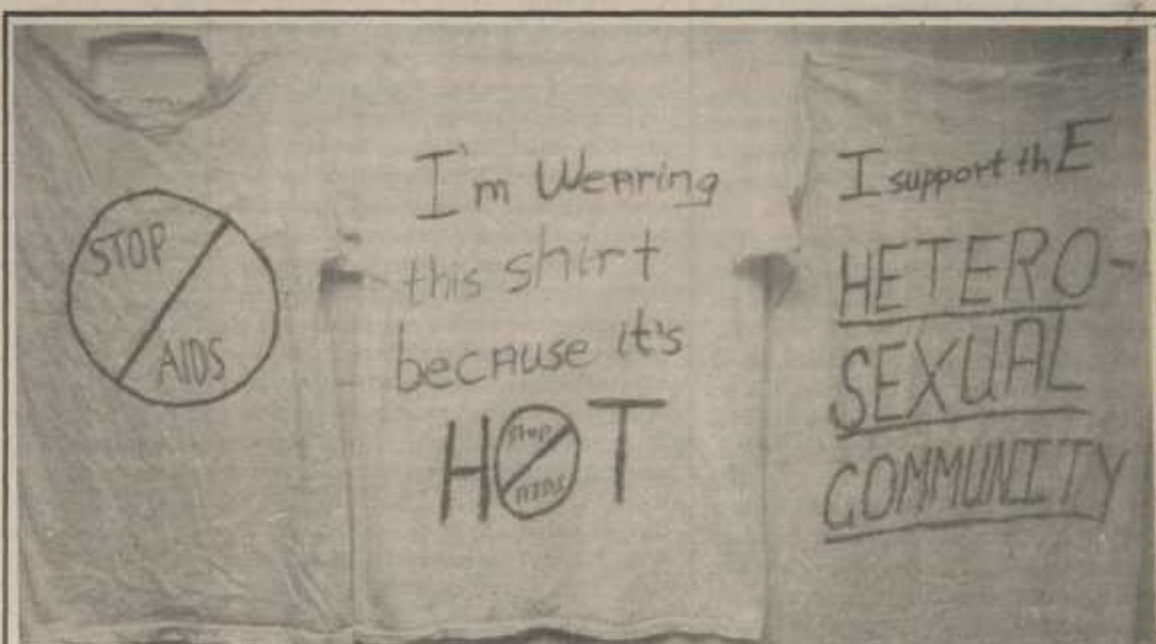 STOP
AIDS
I'm WeARing
this shirt
becAUse it's
HOT
STOP
AIDS
I support thE
HETERO-
SEXUAL
COMMUNITY